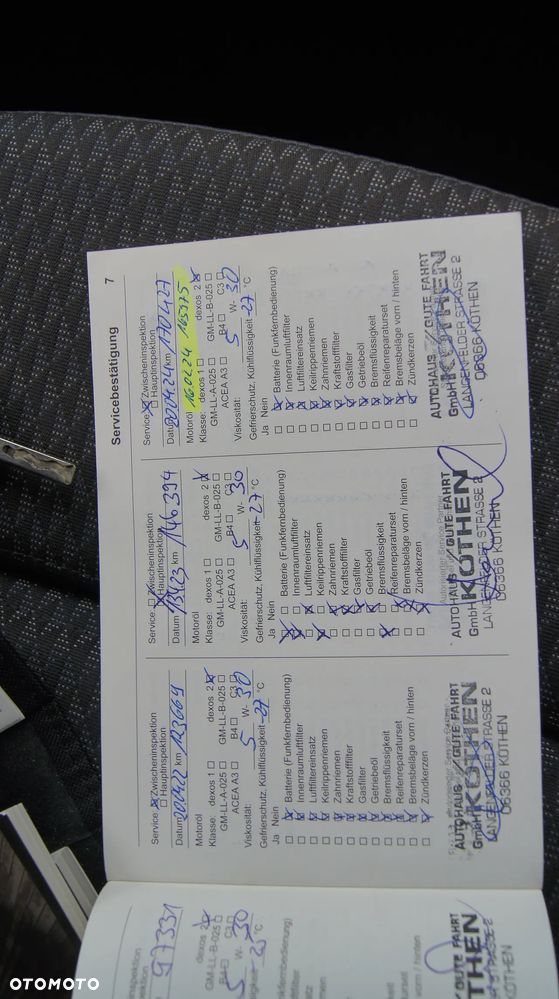 Servicebestätigung 7
Service ☒ Zwischeninspektion
☐ Hauptinspektion
Datum 20.04.22 km 123669
Motoröl
Klasse: dexos 1 ☐ dexos 2 ☒
GM-LL-A-025 ☐ GM-LL-B-025 ☐
ACEA A3 ☐ B4 ☐ C3 ☐
Viskosität: 5 W- 30
Gefrierschutz, Kühlflüssigkeit -27 °C
Ja Nein
☐ ☒ Batterie (Funkfernbedienung)
☐ ☒ Innenraumluftfilter
☐ ☒ Luftfiltereinsatz
☐ ☒ Keilrippenriemen
☐ ☒ Zahnriemen
☐ ☒ Kraftstofffilter
☐ ☒ Gasfilter
☐ ☒ Getriebeöl
☐ ☒ Bremsflüssigkeit
☐ ☒ Reifenreparaturset
☐ ☒ Bremsbeläge vorn / hinten
☐ ☒ Zündkerzen
AUTOHAUS GUTE FAHRT
GmbH KÖTHEN
LANGENFELDER STRASSE 2
06366 KÖTHEN
Service ☐ Zwischeninspektion
☒ Hauptinspektion
Datum 13.4.23 km 146.394
Motoröl
Klasse: dexos 1 ☐ dexos 2 ☒
GM-LL-A-025 ☐ GM-LL-B-025 ☐
ACEA A3 ☐ B4 ☐ C3 ☐
Viskosität: 5 W- 30
Gefrierschutz, Kühlflüssigkeit -27 °C
Ja Nein
☒ ☐ Batterie (Funkfernbedienung)
☒ ☐ Innenraumluftfilter
☐ ☒ Luftfiltereinsatz
☒ ☐ Keilrippenriemen
☐ ☒ Zahnriemen
☐ ☒ Kraftstofffilter
☐ ☒ Gasfilter
☐ ☒ Getriebeöl
☒ ☐ Bremsflüssigkeit
☐ ☒ Reifenreparaturset
☐ ☒ Bremsbeläge vorn / hinten
☐ ☒ Zündkerzen
Autorisierter Service Partner
AUTOHAUS GUTE FAHRT
GmbH KÖTHEN
LANGENFELDER STRASSE 2
06366 KÖTHEN
Service ☒ Zwischeninspektion
☐ Hauptinspektion
Datum km 170427
Motoröl 16.04.24 165775
Klasse: dexos 1 ☐ dexos 2 ☒
GM-LL-A-025 ☐ GM-LL-B-025 ☐
ACEA A3 ☐ B4 ☐ C3 ☐
Viskosität: 5 W- 30
Gefrierschutz, Kühlflüssigkeit -27 °C
Ja Nein
☐ ☒ Batterie (Funkfernbedienung)
☐ ☒ Innenraumluftfilter
☐ ☒ Luftfiltereinsatz
☐ ☒ Keilrippenriemen
☐ ☒ Zahnriemen
☐ ☒ Kraftstofffilter
☐ ☒ Gasfilter
☐ ☒ Getriebeöl
☐ ☒ Bremsflüssigkeit
☐ ☒ Reifenreparaturset
☐ ☒ Bremsbeläge vorn / hinten
☐ ☒ Zündkerzen
AUTOHAUS GUTE FAHRT
GmbH KÖTHEN
LANGENFELDER STRASSE 2
06366 KÖTHEN
97331
dexos 2 ☒
GM-LL-B-025 ☐
B4 ☐ C3 ☐
5 W- 30
-25 °C
vorn / hinten
GUTE FAHRT
STRASSE 2
KÖTHEN
OTOMOTO